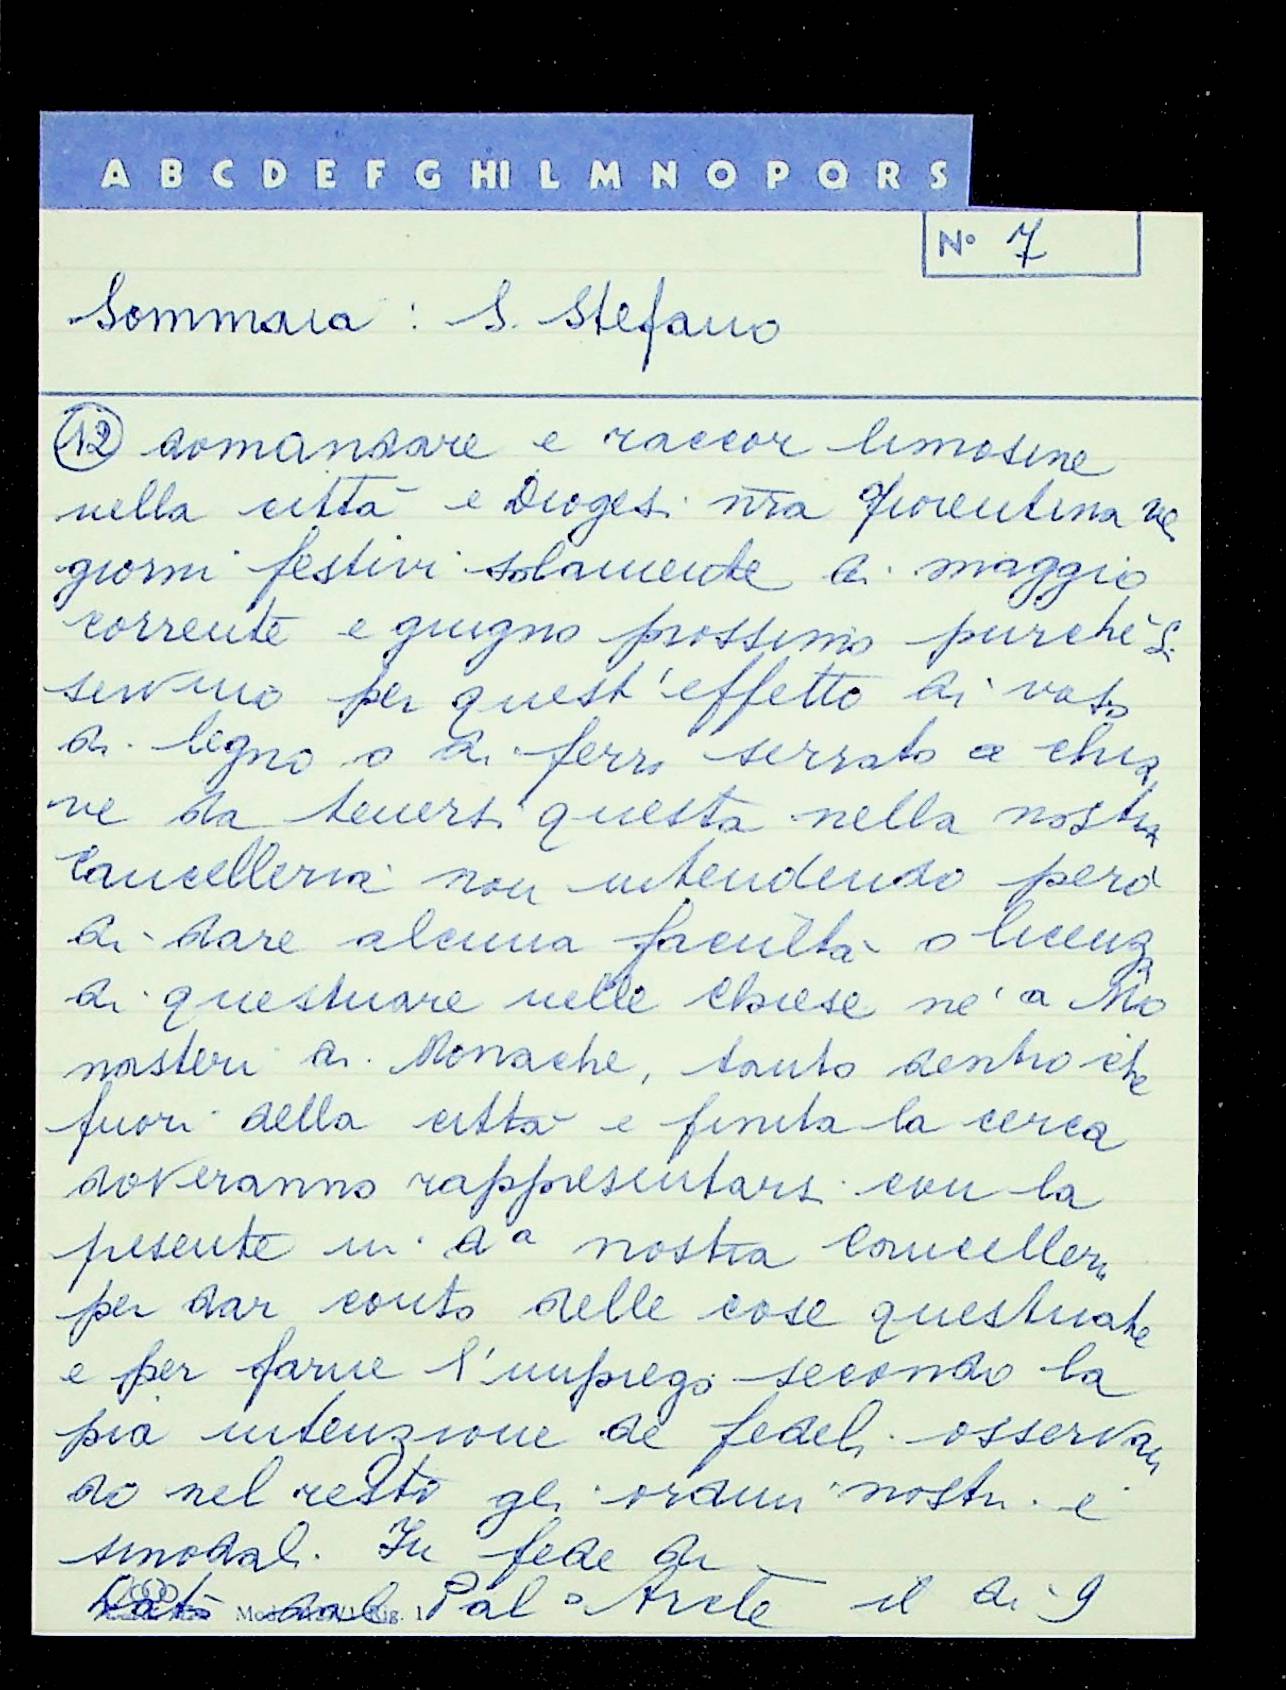 A B C D E F G HI L M N O P Q R S
N° 7
Sommaia : S. Stefano
12 domandare e raccor limosine
nella città e Diogesi nra fiorentina ne
giorni festivi solamente di maggio
corrente e giugno prossimo purchè si
servino per quest'effetto di vaso
di legno o di ferro serrato a chia
ve da tenersi questa nella nostra
Cancelleria non intendendo però
di dare alcuna facultà o licenza
di questuare nelle chiese nè a Mo
nasteri di Monache, tanto dentro che
fuori della città e finita la cerca
doveranno rappresentarsi con la
presente in da nostra Cancelleri
per dar conto delle cose questuate
e per farne l'impiego secondo la
pia intenzione de fedeli osservan
do nel resto gli ordini nostri e
sinodali. In fede di
Dato dal Pal° Arcte il dì 9